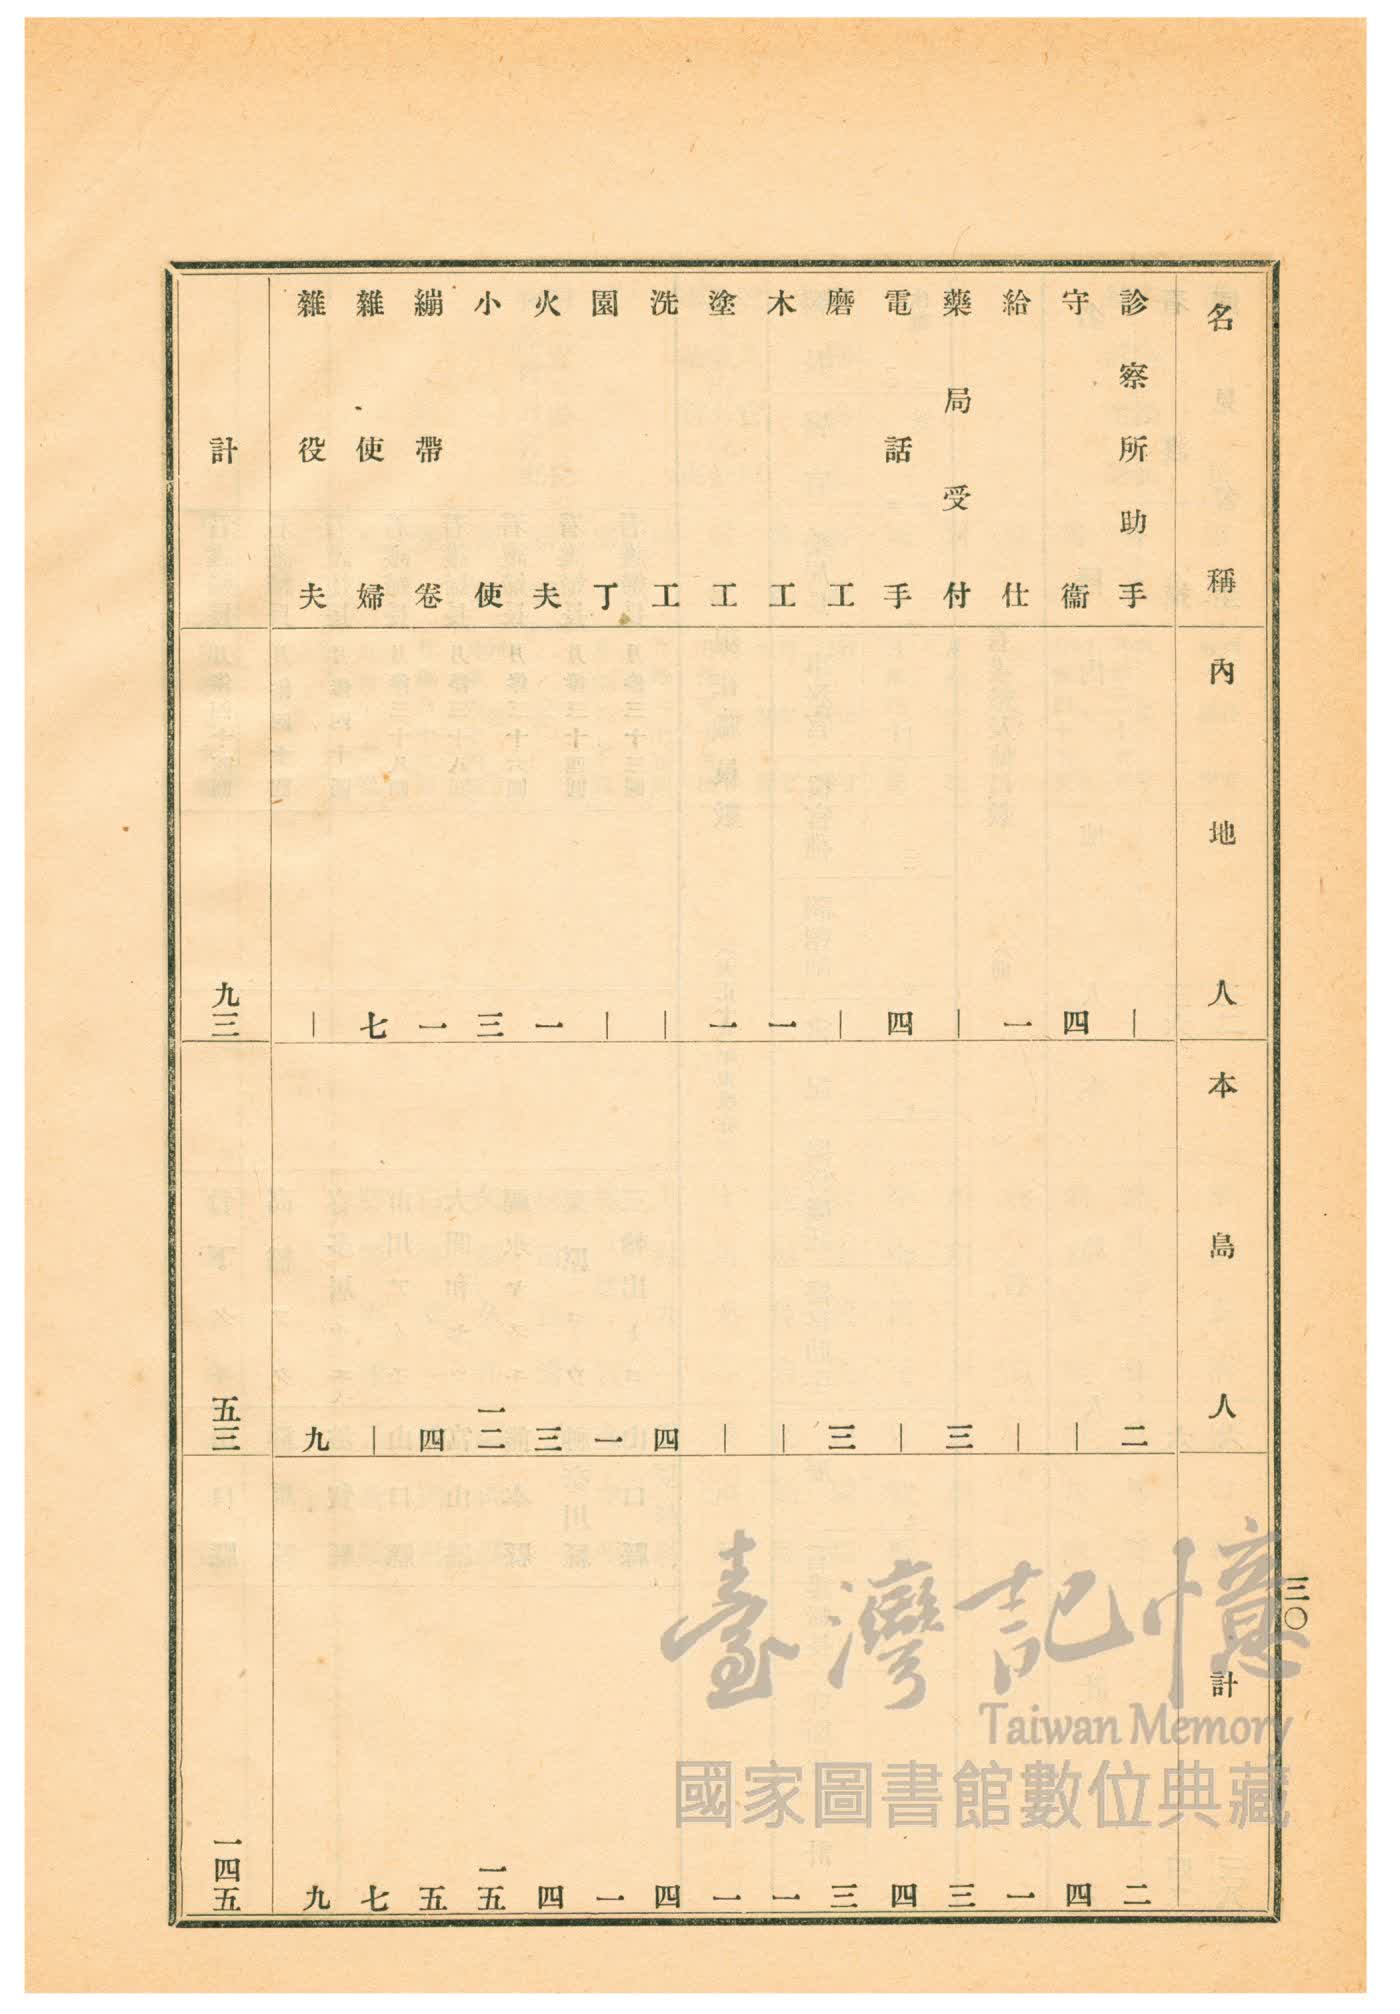 名稱 內地人 本島人 計
診察所助手 — 二 二
守衞 四 — 四
給仕 一 — 一
藥局受付 — 三 三
電話手 四 — 四
磨工 — 三 三
木工 一 — 一
塗工 一 — 一
洗工 — 四 四
園丁 — 一 一
火夫 一 三 四
小使 三 一二 一五
繃帶卷 一 四 五
雜使婦 七 — 七
雜役夫 — 九 九
計 九三 五三 一四五
三〇
臺灣記憶
Taiwan Memory
國家圖書館數位典藏